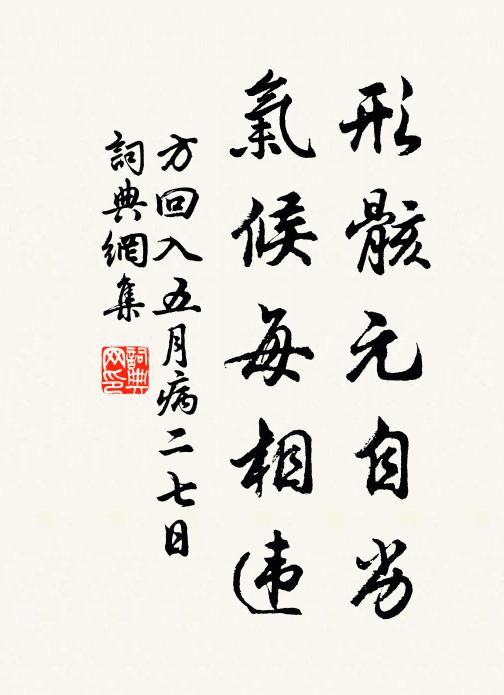 形骸元自劣
氣候每相违
方回入五月病二七日
詞典網集
詞典网印